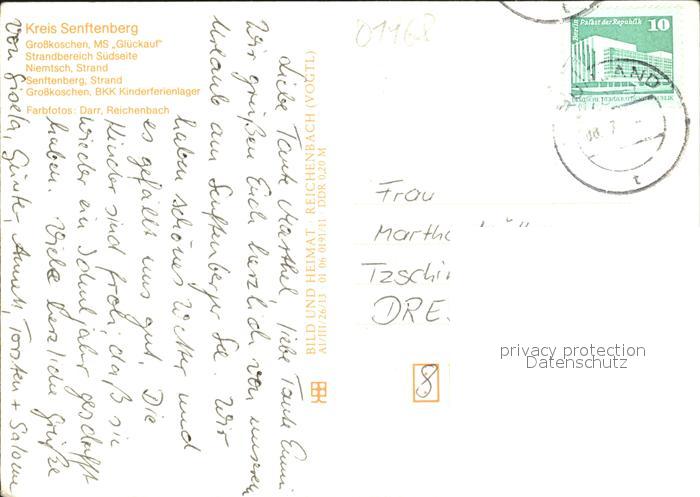 Kreis Senftenberg
Großkoschen, MS „Glückauf"
Strandbereich Südseite
Niemtsch, Strand
Senftenberg, Strand
Großkoschen, BKK Kinderferienlager
Farbfotos: Darr, Reichenbach
01968
Liebe Tante Marthel, liebe Tante Emmi
Wir grüßen Euch herzlich von unserem
Urlaub am Senftenberger See. Wir
haben schönes Wetter und
es gefällt uns gut. Die
Kinder sind froh, daß sie
wieder ein Schuljahr geschafft
haben. Viele herzliche Grüße
von Gisela, Günter, Annett, Torsten + Salome
BILD UND HEIMAT · REICHENBACH (VOGTL)
A1/III/26/13 01 06 0191/11 DDR 0,20 M
Berlin, Palast der Republik
10
Frau
Martha
Tzschi
DRE
8
privacy protection
Datenschutz